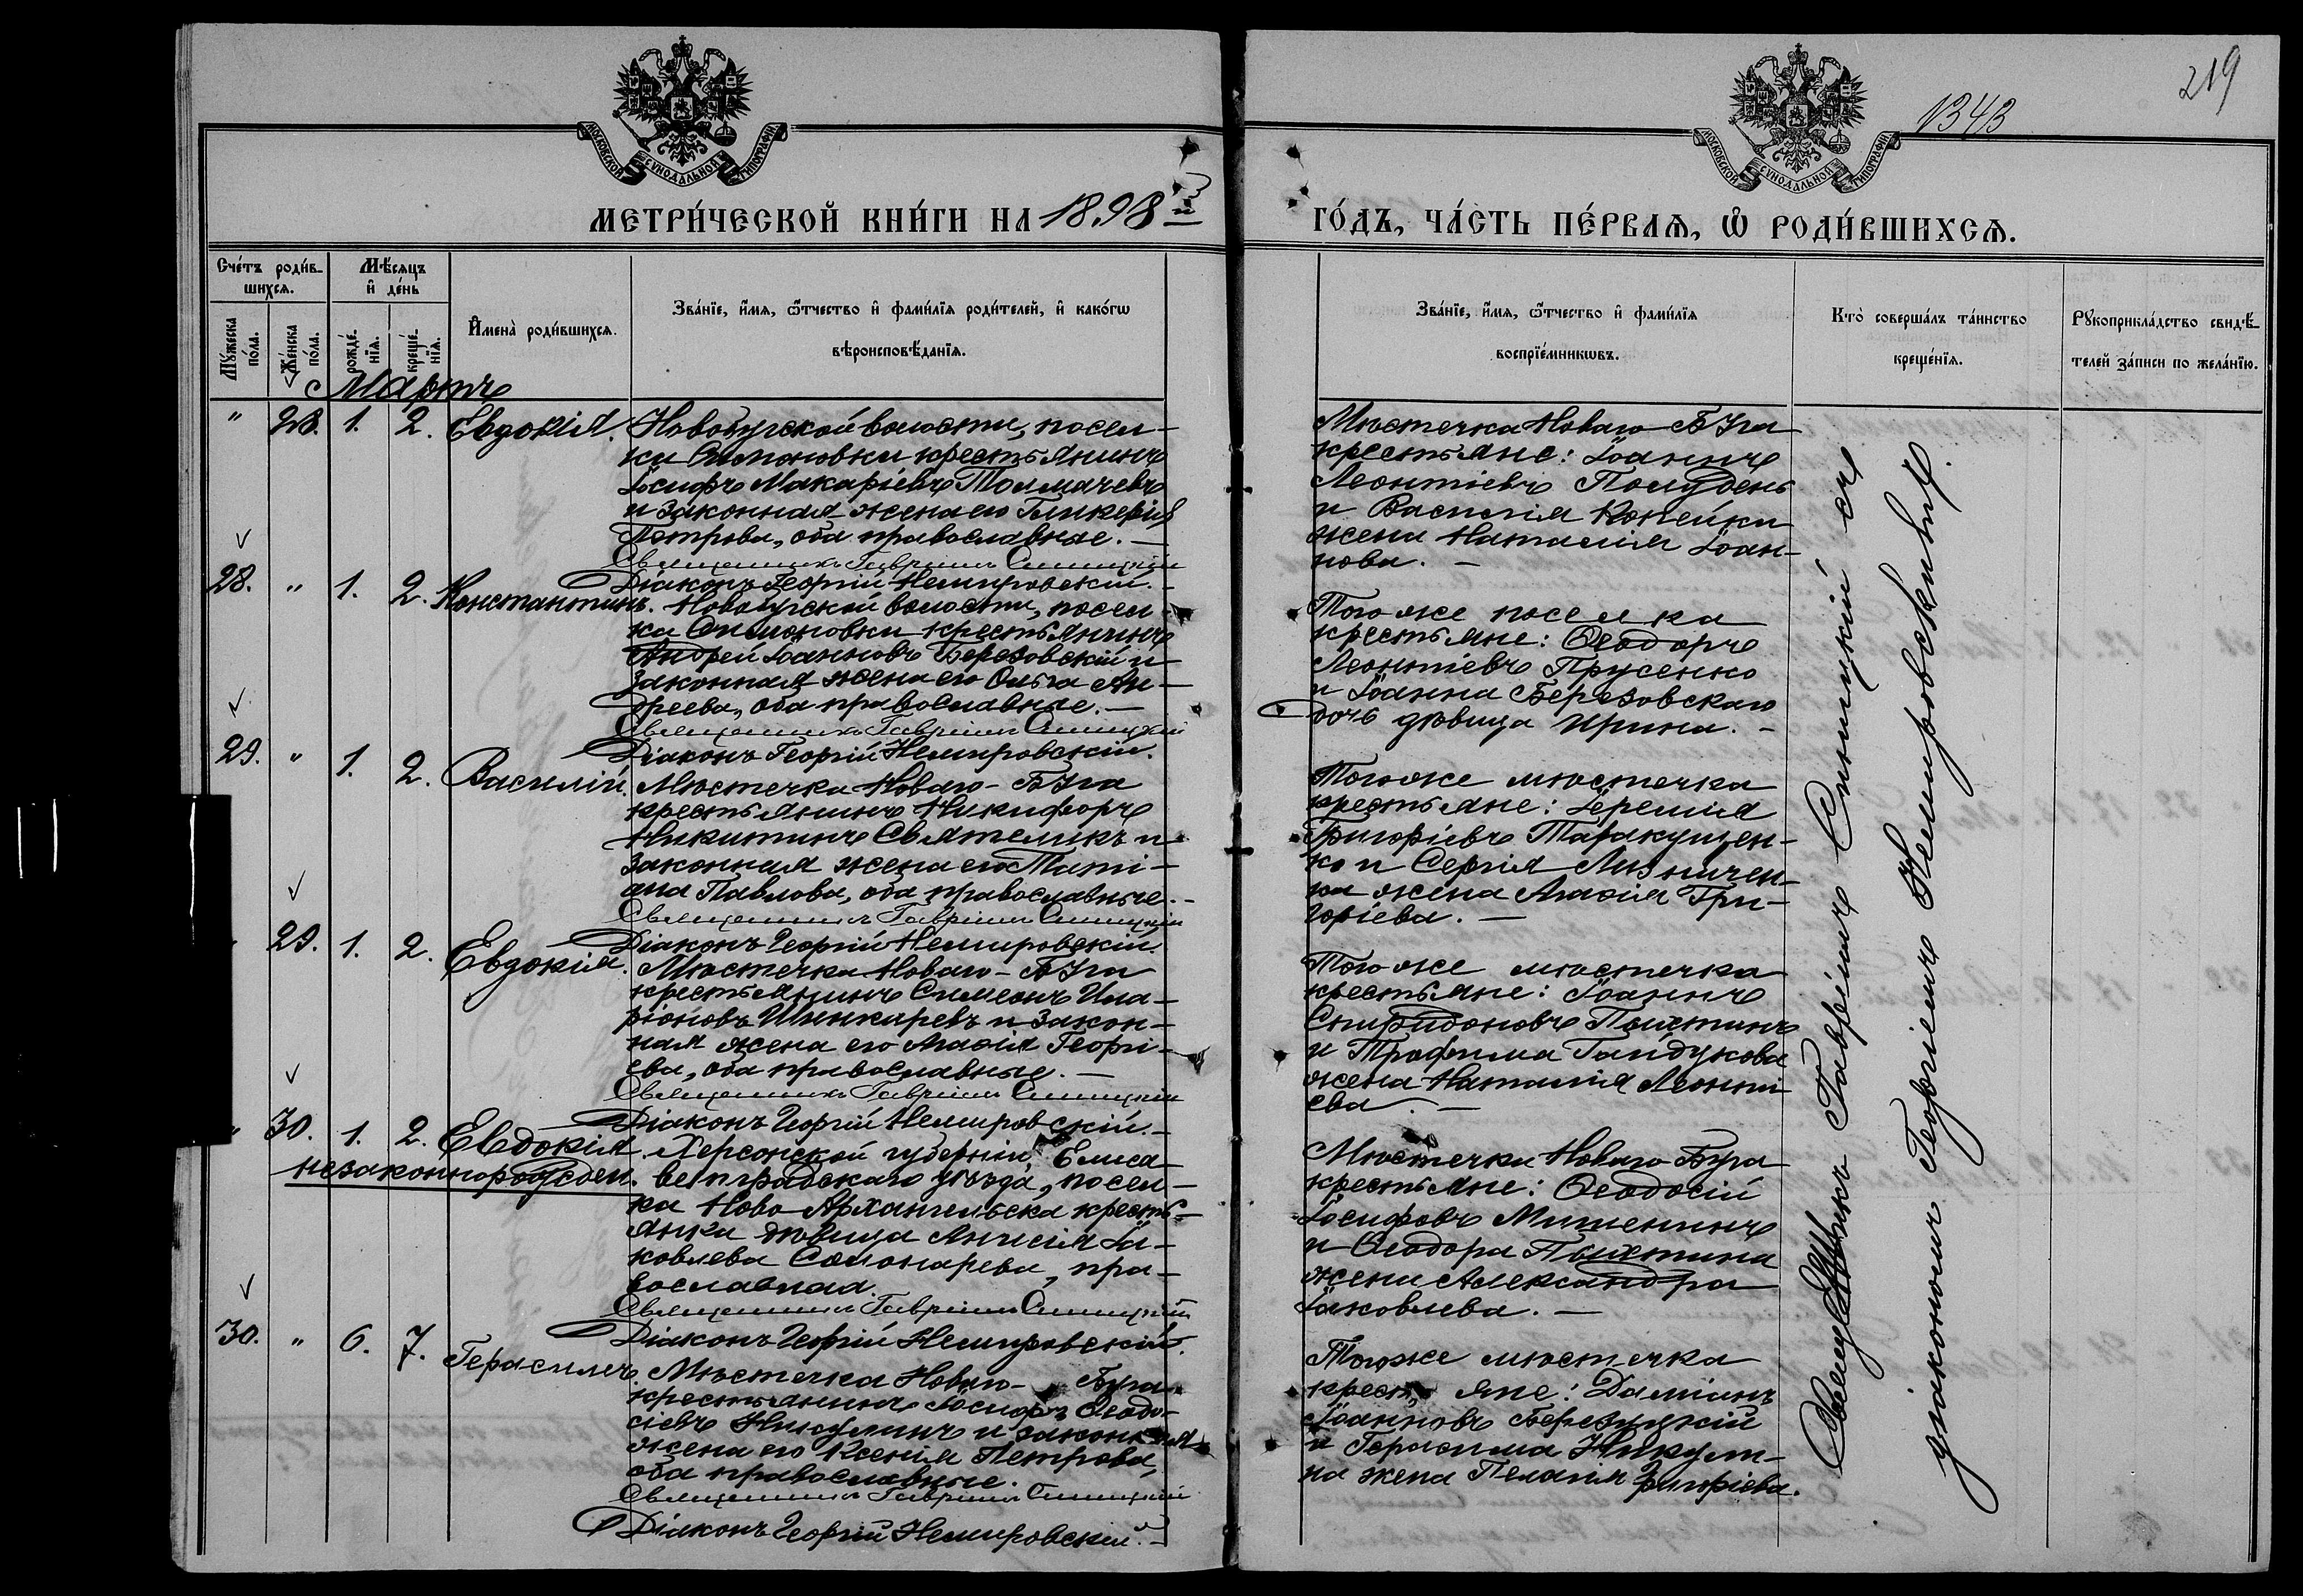 219
1343
МОСКОВСКОЙ СѴНОДАЛЬНОЙ ТИПОГРАФІИ.
МОСКОВСКОЙ СѴНОДАЛЬНОЙ ТИПОГРАФІИ.
МЕТРИ́ЧЕСКОЙ КНИ́ГИ НА 1898й
ГО́ДЪ, ЧА́СТЬ ПЕ́РВАѦ, Ѡ РОДИ́ВШИХСѦ.
Сче́тъ роди́в-
шихсѧ.
Мѣ́сѧцъ
и де́нь
Мꙋ́жеска
по́ла.
Же́нска
по́ла.
рожде́-
нїѧ.
креще́-
нїѧ.
Имена̀ роди́вшихсѧ.
Зва́нїе, и́мѧ, ѻ́тчество и фами́лїѧ роди́телей, и како́гѡ
вѣроисповѣ́данїѧ.
Зва́нїе, и́мѧ, ѻ́тчество и фами́лїѧ
воспрїе́мникѡвъ.
Кто̀ соверша́лъ та́инство
креще́нїѧ.
Рꙋкоприкла́дство свидѣ́-
телей за́писи по жела́нїю.
Мартъ
" 28. 1. 2. Евдокія.
Новобугской волости, посел-
ка Симоновки крестьянинъ
Іосифъ Макаріевъ Толмачевъ
и законная жена его Гликерія
Петрова, оба православные. —
Священникъ Гавріилъ Синицкій
Діаконъ Георгій Немировскій. —
Мѣстечка Новаго-Буга
крестьяне: Іоаннъ
Леонтіевъ Полудень
и Василія Копейки
жена Наталія Іоан-
нова. —
28. " 1. 2. Константинъ.
Новобугской волости, посел-
ка Симоновки крестьянинъ
Андрей Іоанновъ Березовскій и
законная жена его Ольга Ан-
дреева, оба православные. —
Священникъ Гавріилъ Синицкій
Діаконъ Георгій Немировскій.
Того же поселка
крестьяне: Ѳеодоръ
Леонтіевъ Прусенко
и Іоанна Березовскаго
дочь дѣвица Ирина. —
29. " 1. 2. Василій.
Мѣстечка Новаго-Буга
крестьянинъ Никифоръ
Никитинъ Святеликъ и
законная жена его Таті-
ана Павлова, оба православные. —
Священникъ Гавріилъ Синицкій
Діаконъ Георгій Немировскій.
Того же мѣстечка
крестьяне: Іеремія
Григоріевъ Таракущен-
ко и Сергія Мизничен-
ка жена Агаѳія Гри-
горіева. —
" 29. 1. 2. Евдокія.
Мѣстечка Новаго-Буга
крестьянинъ Симеонъ Ила-
ріоновъ Шинкаревъ и закон-
ная жена его Агаѳія Георгі-
ева, оба православные. —
Священникъ Гавріилъ Синицкій
Діаконъ Георгій Немировскій. —
Того же мѣстечка
крестьяне: Іоаннъ
Спиридоновъ Пыхтинъ
и Трофима Гайдукова
жена Наталія Леонті
ева. —
" 30. 1. 2. Евдокія
незаконнорожден.
Херсонской губерніи, Елиса-
ветградскаго уѣзда, посел-
ка Ново-Архангельска кресть-
янка дѣвица Анисія Іа-
ковлева Сапонарева, пра-
вославная.
Священникъ Гавріилъ Синицкій
Діаконъ Георгій Немировскій.
Мѣстечка Новаго Буга
крестьяне: Ѳеодосій
Іосифовъ Мишенинъ
и Ѳеодора Пыхтина
жена Александра
Іаковлева. —
30. " 6. 7. Герасимъ.
Мѣстечка Новаго-Буга
крестьянинъ Іосифъ Ѳеодо-
сіевъ Никулинъ и законная
жена его Ксенія Петрова,
оба православные.
Священникъ Гавріилъ Синицкій
Діаконъ Георгій Немировскій. —
Того же мѣстечка
крестьяне: Даміанъ
Іоанновъ Березуцкій
и Герасима Никули-
на жена Пелагія Григоріева.
Священникъ Гавріилъ Синицкій съ
діакономъ Георгіемъ Немировскимъ.